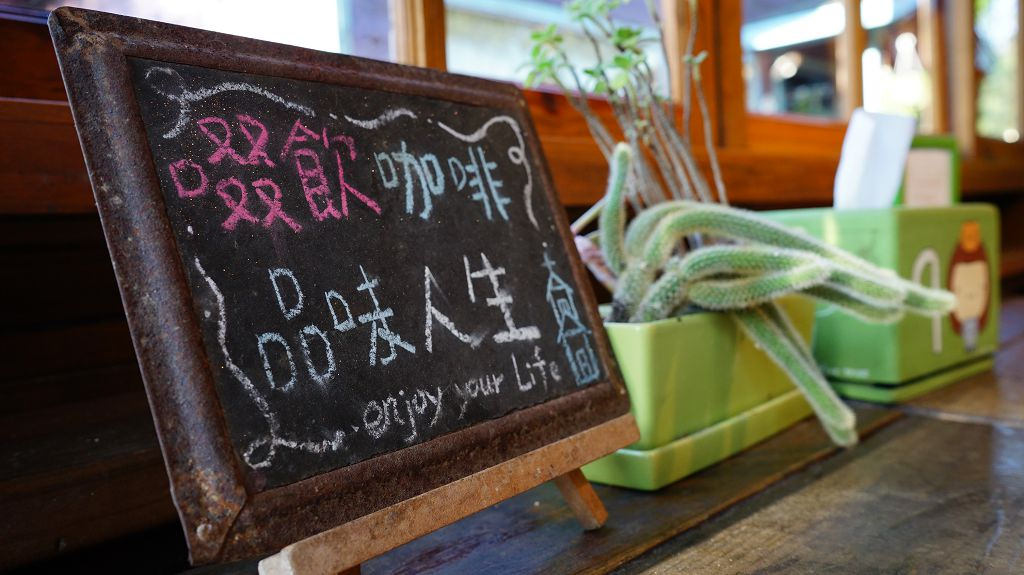 啜飲咖啡
品味人生
enjoy your Life